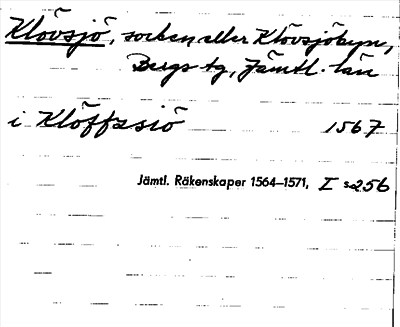 Klövsjö, socken eller Klövsjöbyn,
Bergs tg, Jämtl. län
i Klöffzsiö 1567
Jämtl. Räkenskaper 1564–1571, I s. 256